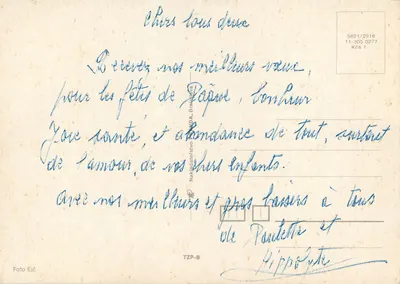 Chers tous deux
6801/2516
11-305 0277
Recevez nos meilleurs vœux,
pour les fêtes de Pâque, bonheur
Joie santé, et abondance de tout, surtout
de l'amour, de vos chers enfants.
avec nos meilleurs et gros baisers à tous
de Paulette et
Hippolyte
TZP-B
Foto Ed.